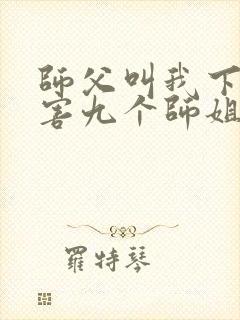 師父叫我下
害九个師姐
羅特琴